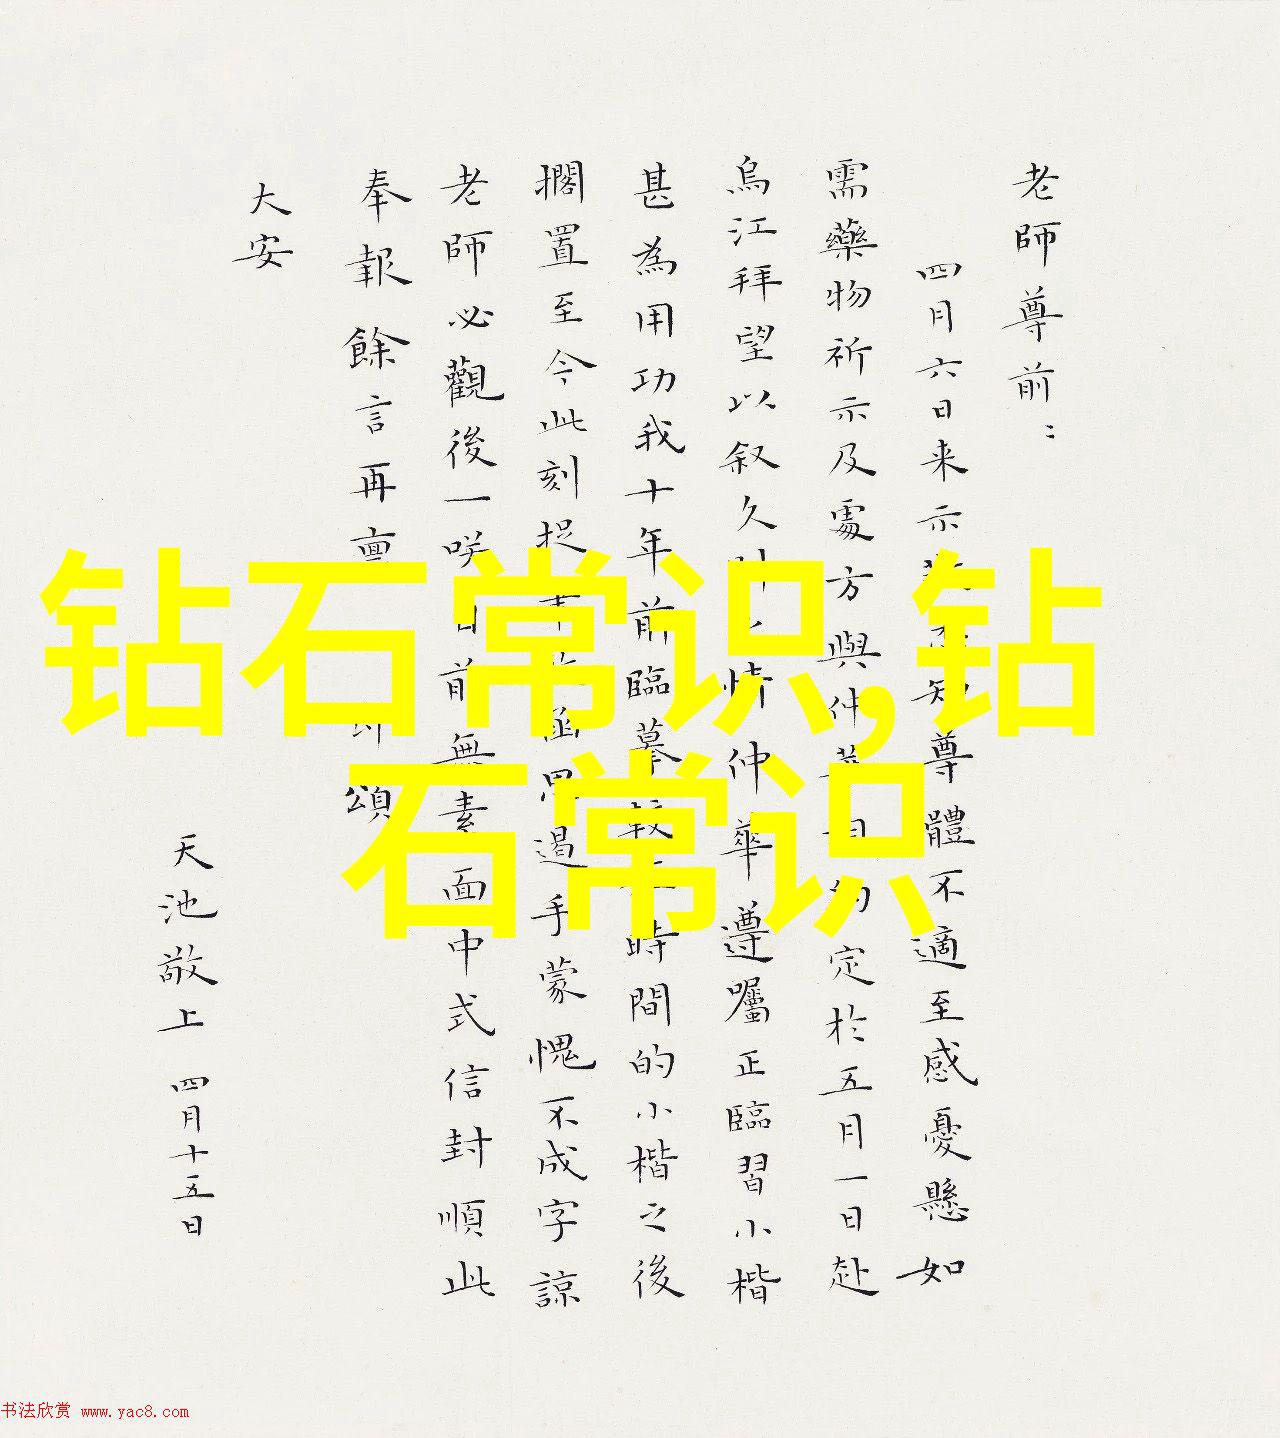 老師尊前：
四月六日来示知尊體不適至感憂懸如
需藥物祈示及處方與仲定於五月一日赴
烏江拜望以叙久情仲華遵囑正臨習小楷
甚為用功我十年前臨摹時間的小楷之後
擱置至今此刻函思遏手蒙愧不成字諒
老師必觀後一咲日前無素面中式信封順此
奉報餘言再頌
大安
天池敬上 四月十五日
钻石常识,钻
石常识
书法欣赏 www.yac8.com